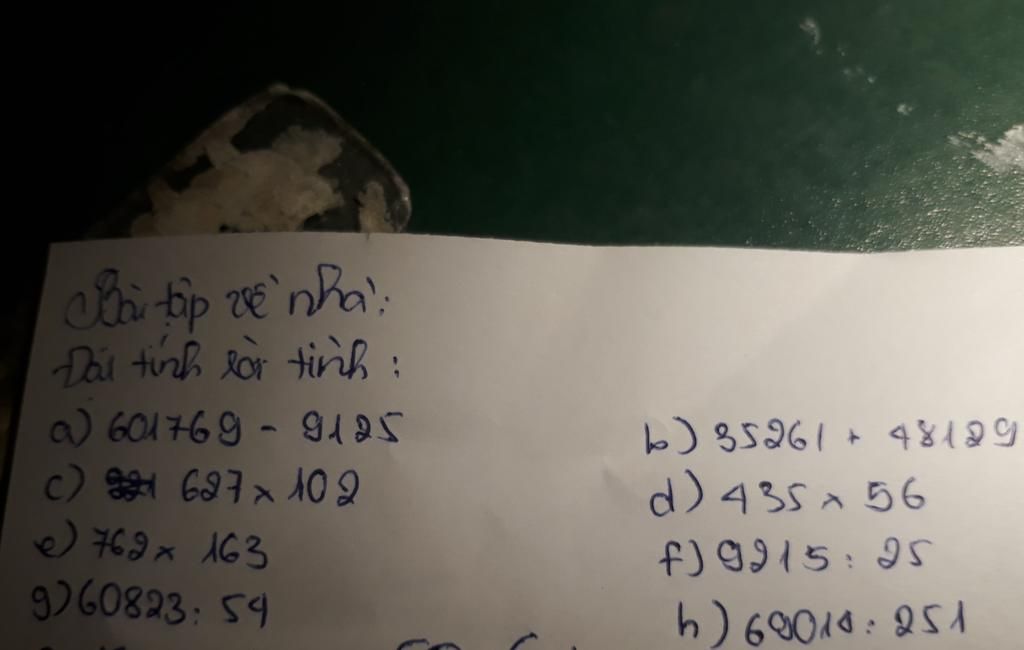 Bài tập về nhà:
Đặt tính rồi tính:
a) 601769 - 9125
b) 35261 + 48129
c) 627 x 102
d) 435 x 56
e) 762 x 163
f) 9215 : 25
g) 60823 : 54
h) : 251